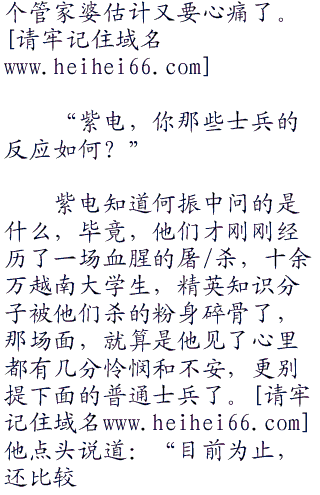 个管家婆估计又要心痛了。
[请牢记住域名
www.heihei66.com]
“紫电，你那些士兵的
反应如何？”
紫电知道何振中问的是
什么，毕竟，他们才刚刚经
历了一场血腥的屠/杀，十余
万越南大学生，精英知识分
子被他们杀的粉身碎骨了，
那场面，就算是他见了心里
都有几分怜悯和不安，更别
提下面的普通士兵了。[请牢
记住域名www.heihei66.com]
他点头说道：“目前为止，
还比较